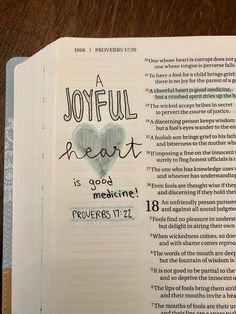 1006 | PROVERBS 17:20
A
JOYFUL
heart
is good
medicine!
PROVERBS 17:22
20 One whose heart is corrupt does not
one whose tongue is perverse falls
21 To have a fool for a child brings grief;
there is no joy for the parent of a
22 A cheerful heart is good medicine,
but a crushed spirit dries up the b
23 The wicked accept bribes in secret
to pervert the course of justice.
24 A discerning person keeps wisdom
but a fool's eyes wander to the en
25 A foolish son brings grief to his father
and bitterness to the mother who
26 If imposing a fine on the innocent i
surely to flog honest officials is n
27 The one who has knowledge uses w
and whoever has understanding
28 Even fools are thought wise if they
and discerning if they hold their
18 An unfriendly person pursues
and against all sound judgme
2 Fools find no pleasure in underst
but delight in airing their own
3 When wickedness comes, so does
and with shame comes reproach
4 The words of the mouth are deep
but the fountain of wisdom is
5 It is not good to be partial to the
and so deprive the innocent
6 The lips of fools bring them strife
and their mouths invite a bea
7 The mouths of fools are their un